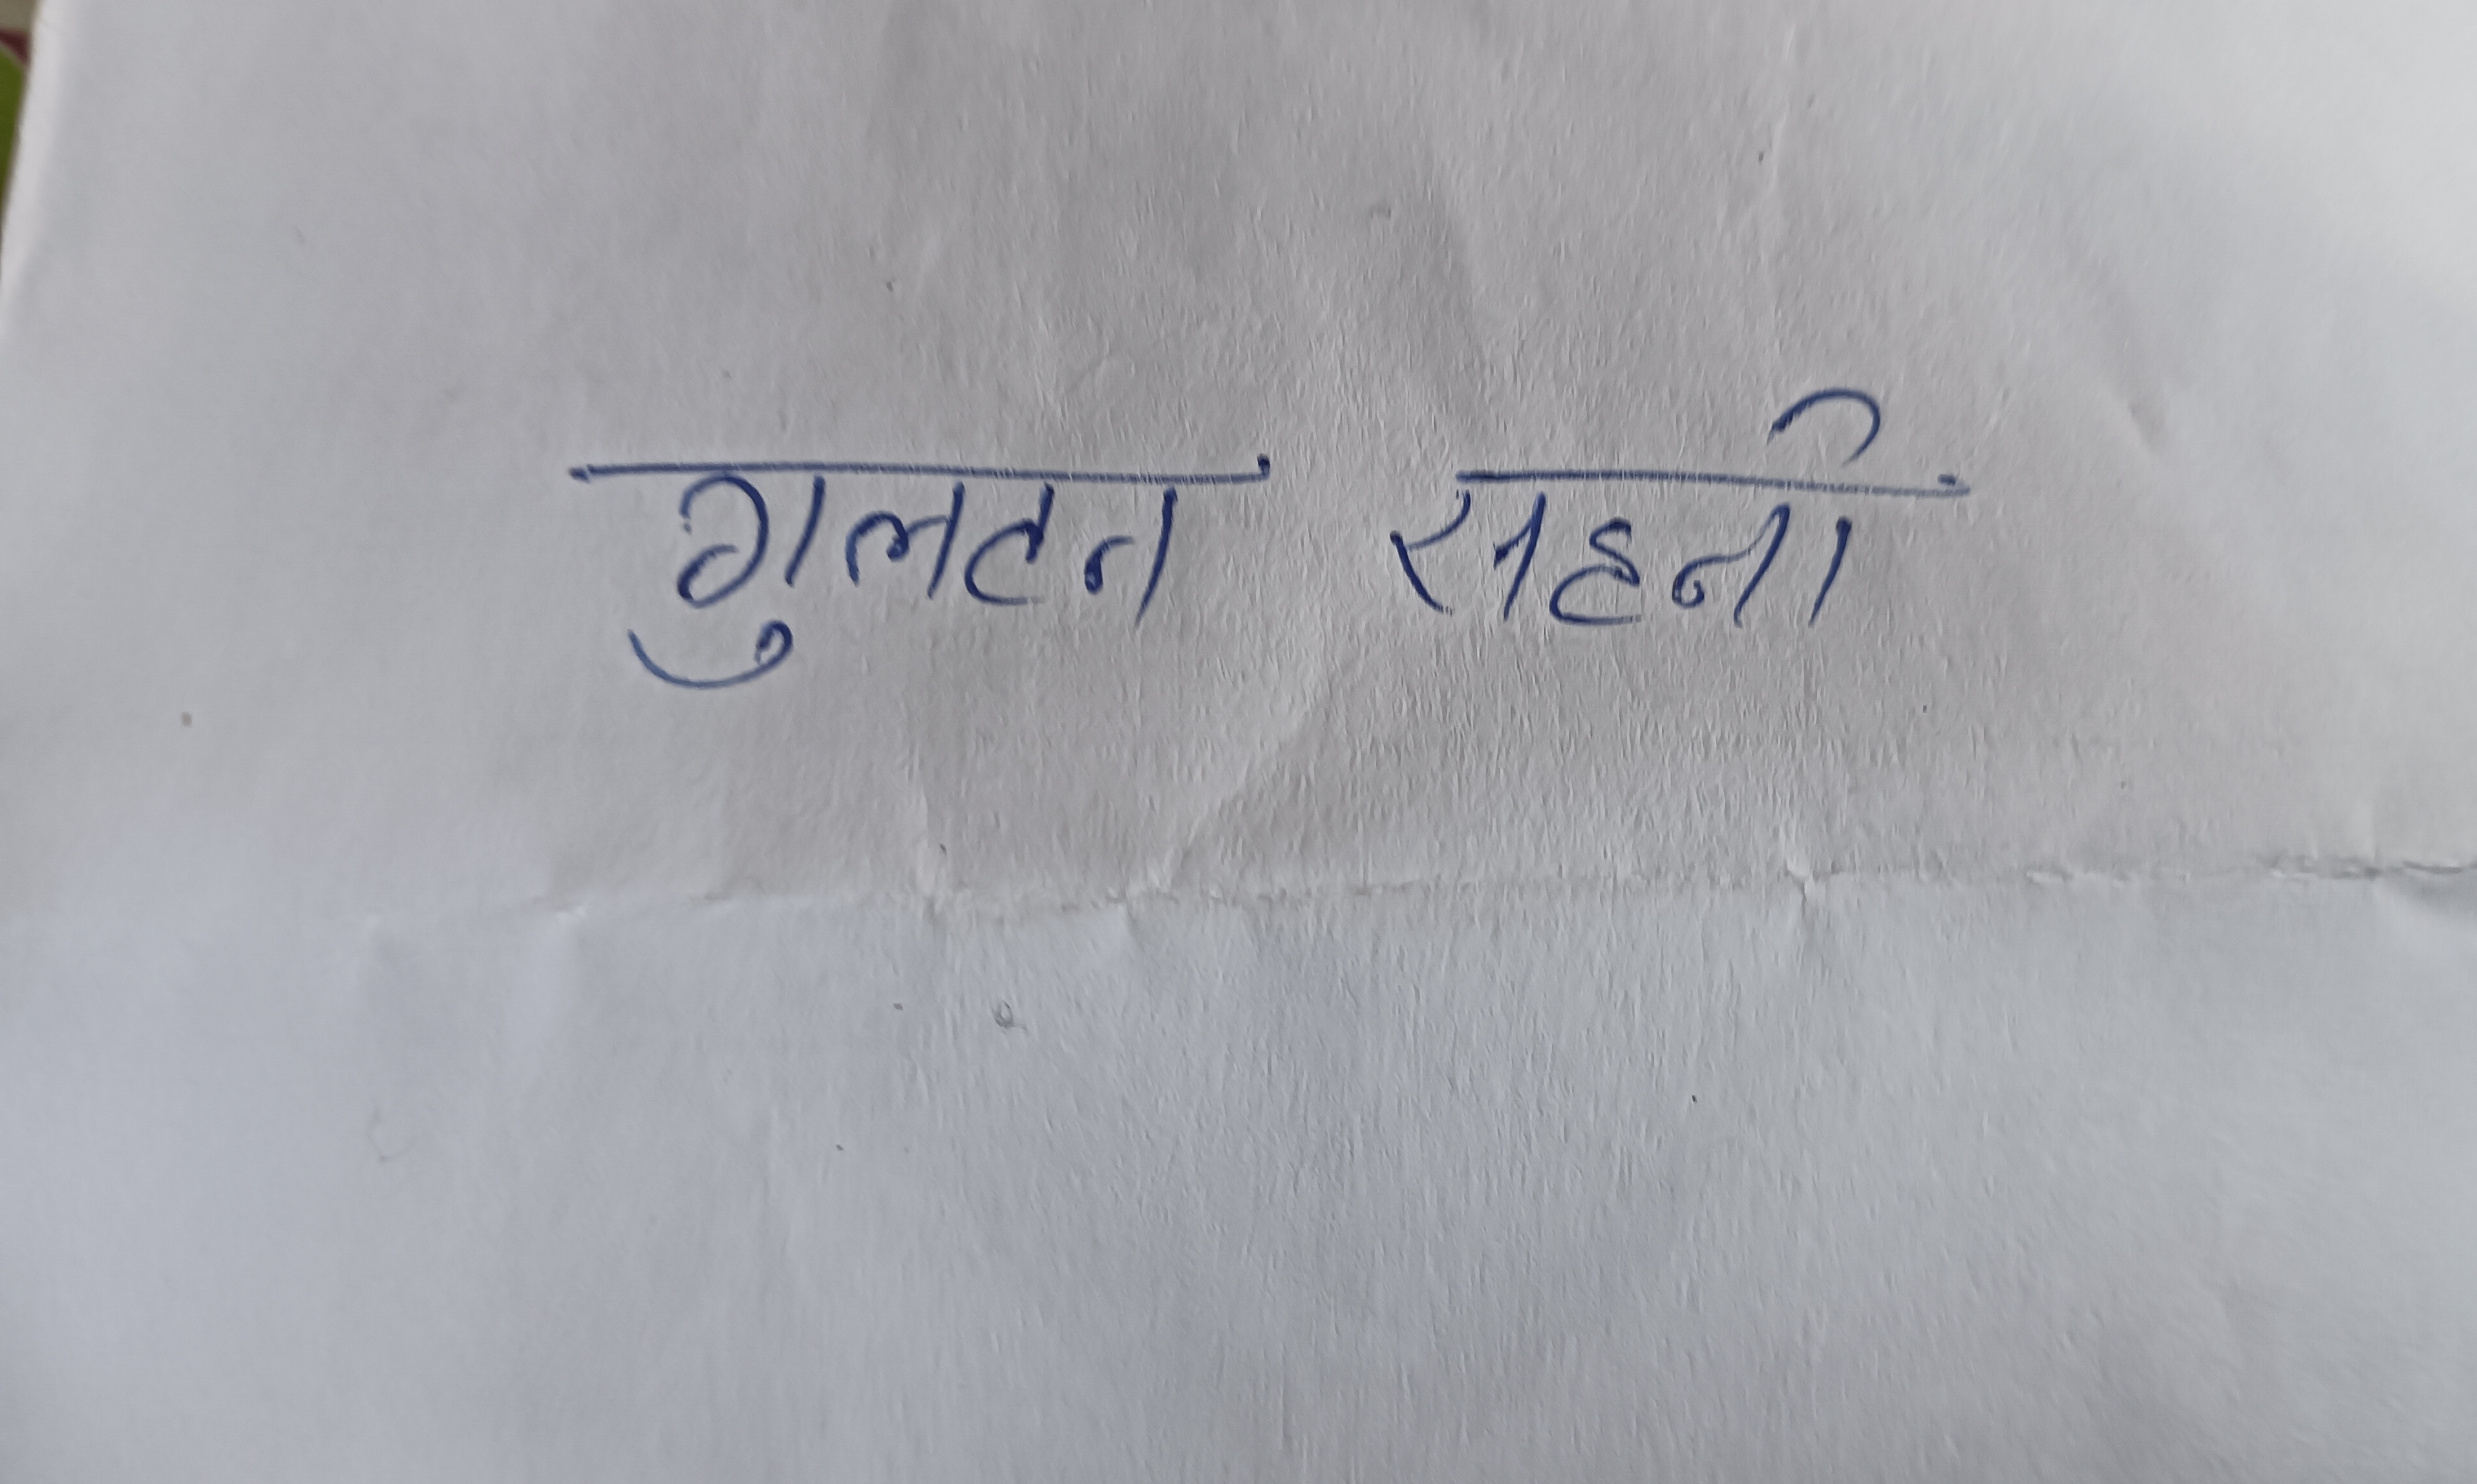 गुलटन सहनी